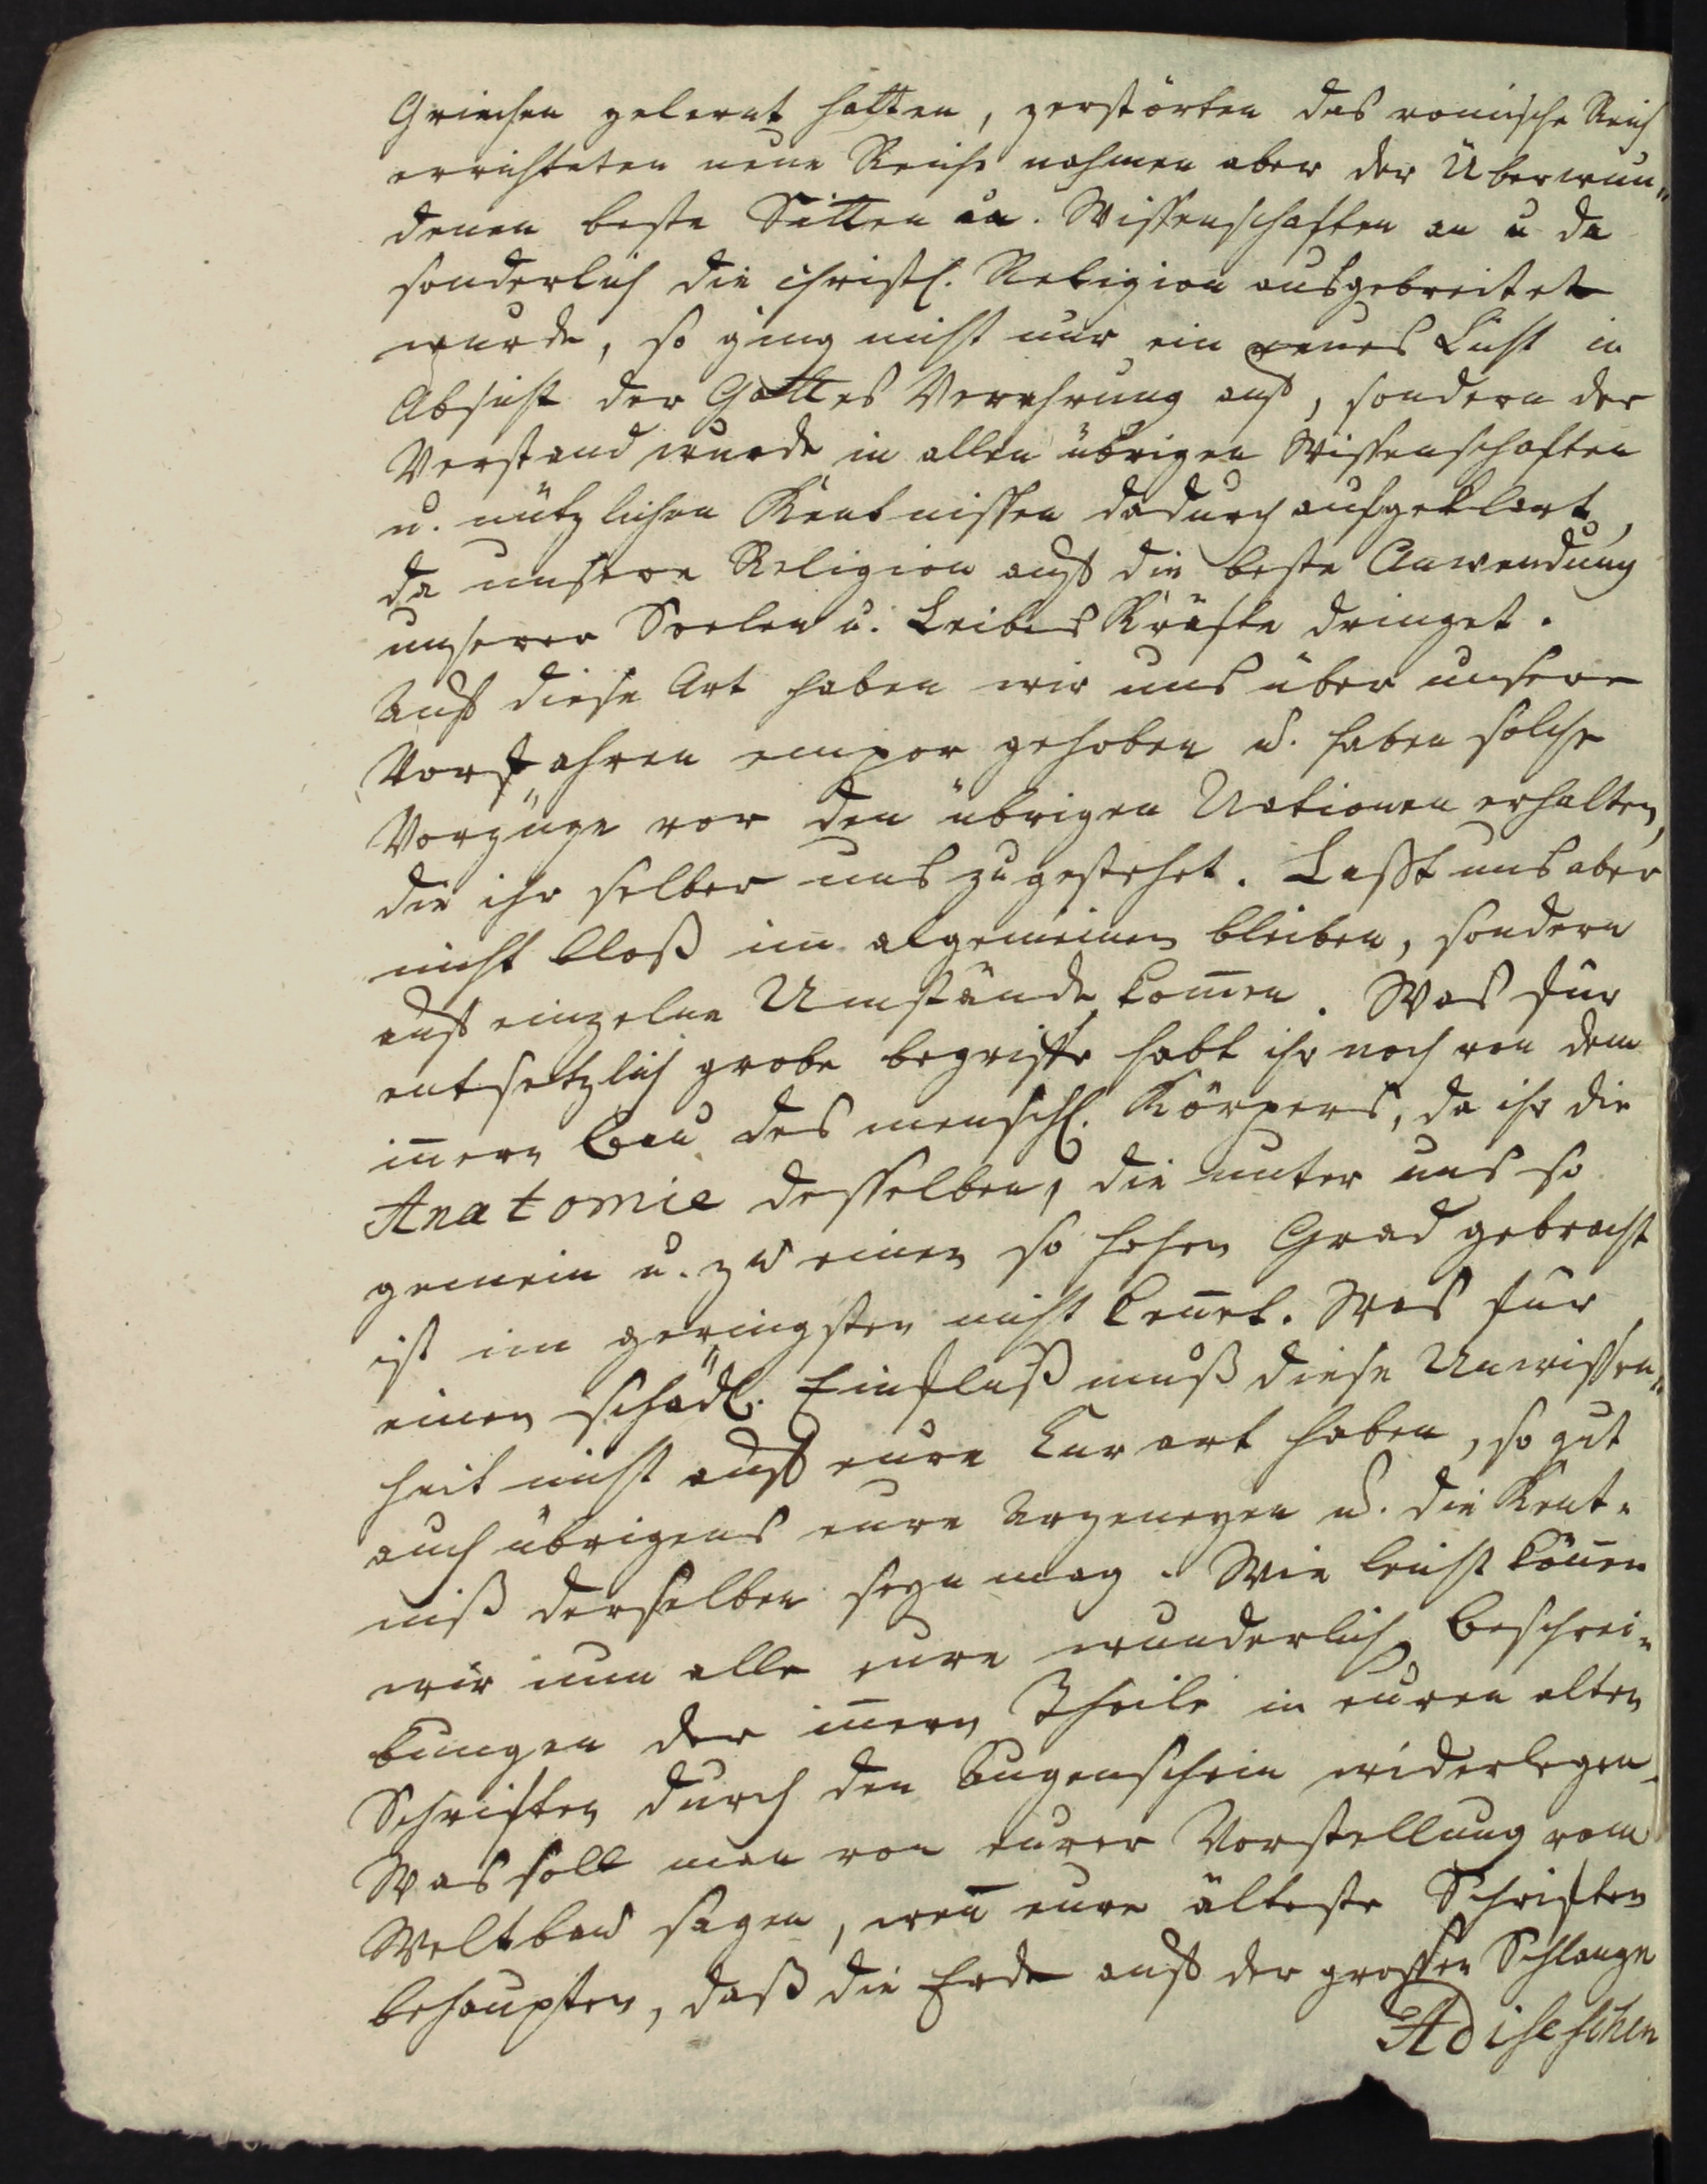 Griechen gelernt hatten, zerstörten das römische Reich
errichteten neue Reiche nahmen aber der Überwun„
denen beste Sitten u. Wissenschaften an u da
sonderlich die christl. Religion ausgebreitet
wurde, so ging nicht nur ein neues Licht in
Absicht der Gottes Verehrung auf, sondern der
Verstand wurde in allen übrigen Wissenschaften
u. nützlichen Kentnissen dadurch aufgeklert,
da unsere Religion auf die beste Anwendung
unserer Seelen u. Leibes Kräfte dringet.
Auf diese Art haben wir uns über unsere
Vorfahren empor gehoben u. haben solche
Vorzüge vor den übrigen Nationen erhalten,
die ihr selber uns zugestehet. Lasst uns aber
nicht bloß im algemeinen bleiben, sondern
auf einzelne Umstände kom̄en. Was für
entsetzlich grobe begriffe habt ihr noch von dem
in̄ern Bau des menschl. Körpers, da ihr die
Anatomie desselben, die unter uns so
gemein u. zu einen so hohen Grad gebracht
ist im geringsten nicht ken̄et. Was für
einen schädl. Einfluß muß diese Unwissen„
heit nicht auf eure Kurart haben, so gut
auch übrigens eure Arzeneyen u. die Kent„
niß derselben seyn mag. Wie leicht kön̄en
wir nun alle eure wunderlich Beschrei„
bungen der in̄ern Theile in euren alten
Schriften durch den Augenschein widerlegen.
Was soll man von eurer Vorstellung vom
Weltbau sagen, wen̄ eure älteste Schriften
behaupten, daß die Erde auf der grossen Schlange
Adiseschen